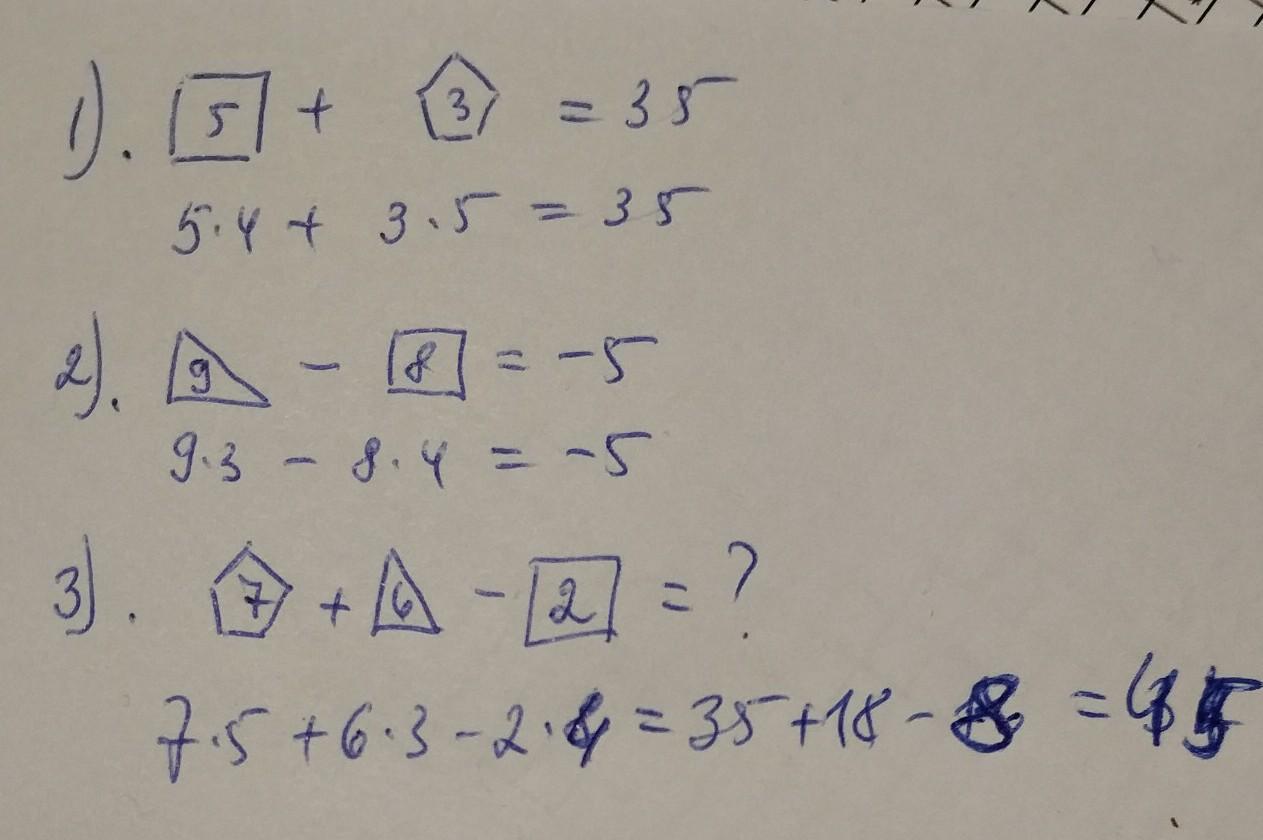 1). 5 + 3 = 35
5·4 + 3·5 = 35
2). 9 - 8 = -5
9·3 - 8·4 = -5
3). 7 + 6 - 2 = ?
7·5 + 6·3 - 2·4 = 35 + 18 - 8 =